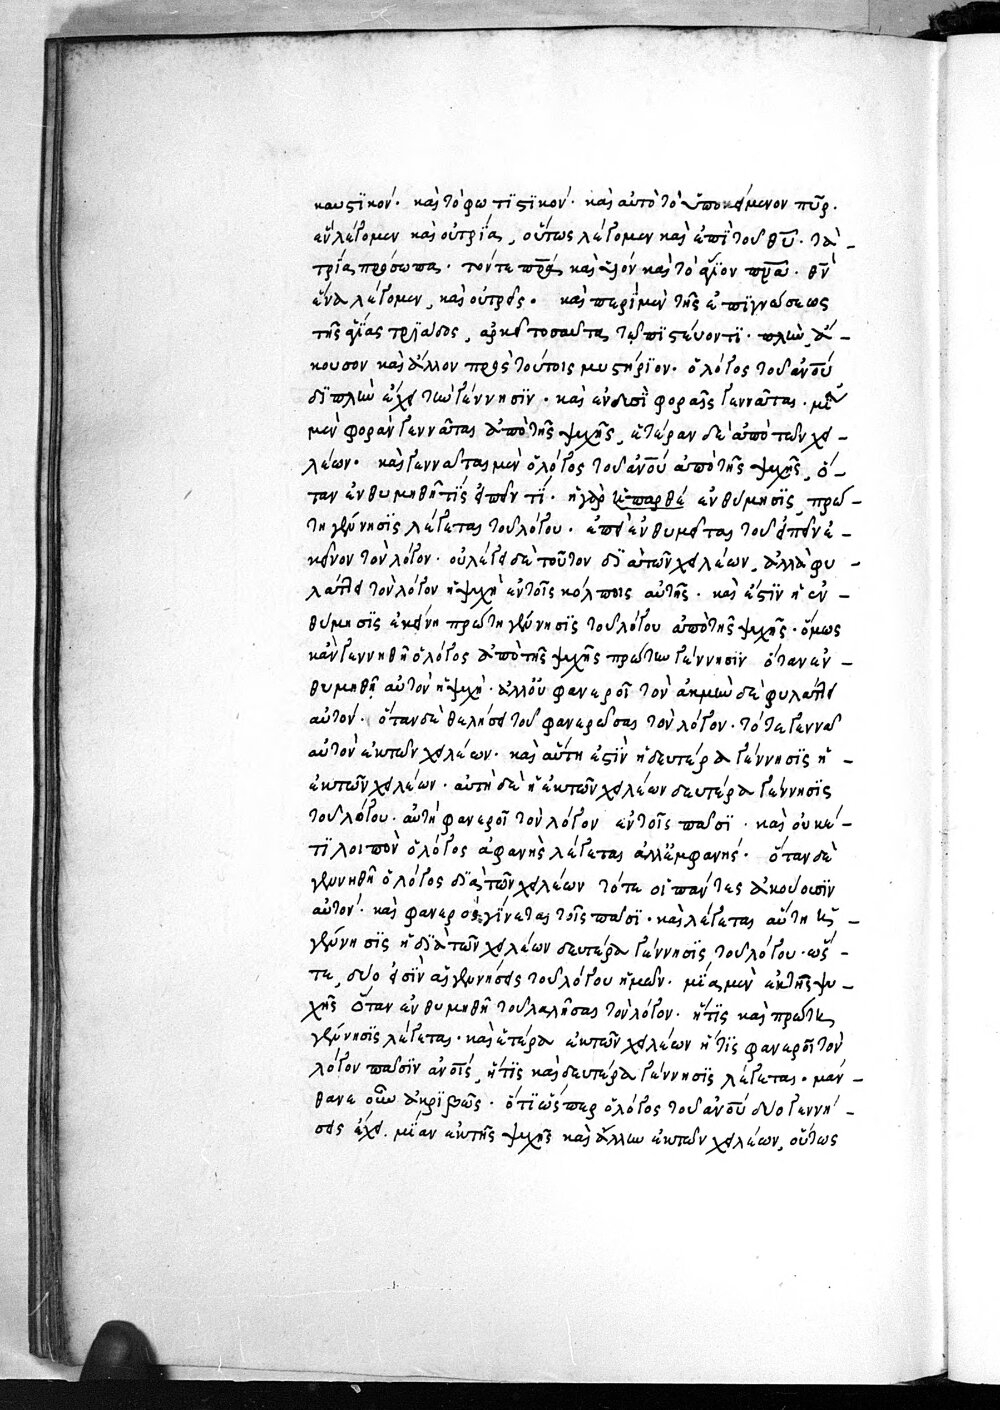 καυστικόν· καὶ τὸ φωτιστικόν· καὶ αὐτὸ τὸ ὑποκείμενον πῦρ.
ἓν λέγομεν καὶ οὐ τρία, οὕτως λέγομεν καὶ ἐπὶ τοῦ θυ̅. τὰ
τρία πρόσωπα. τόν τε πρ̅α καὶ υἱόν καὶ τὸ ἅγιον πνα̅. θν̅
ἕνα λέγομεν, καὶ οὐ τρεῖς. καὶ περὶ μὲν τῆς ἐπιγνώσεως
τῆς ἁγίας τριάδος, ἀρκεῖ τοσαῦτα τῷ πιστεύοντι. πλὴν ἄ-
κουσον καὶ ἄλλον πρὸς τούτοις μυστήριον. ὁ λόγος τοῦ ἀνο̅υ
διπλὴν ἔχει τὴν γέννησιν. καὶ ἐν δυσὶ φοραῖς γεννᾶται. μίαν
μὲν φορὰν γεννᾶται ἀπὸ τῆς ψυχῆς, ἑτέραν δὲ ἀπὸ τῶν χει-
λέων. καὶ γεννᾶται μὲν ὁ λόγος τοῦ ἀνο̅υ ἀπὸ τῆς ψυχῆς, ὅ-
ταν ἐνθυμηθῇ τίς εἰπεῖν τι. ἡ γὰρ ἐνθύμησις, πρώ-
τη γέννησις λέγεται τοῦ λόγου. ἐπεὶ ἐνθυμεῖται τοῦ εἰπεῖν ἐ-
κεῖνον τὸν λόγον. οὐ λέγει δὲ τοῦτον διὰ τῶν χειλέων, ἀλλὰ φυ-
λάττει τὸν λόγον ἡ ψυχὴ ἐν τοῖς κόλποις αὐτῆς. καὶ ἔστιν ἡ ἐν-
θύμησις ἐκείνη πρώτη γέννησις τοῦ λόγου ἀπὸ τῆς ψυχῆς. ὅμως
κἂν γεννηθῇ ὁ λόγος ἀπὸ τῆς ψυχῆς πρώτην γέννησιν ὅταν ἐν-
θυμηθῇ αὐτὸν ἡ ψυχή. ἀλλ' οὐ φανεροῖ τὸν ἀκμὴν δὲ φυλάττει
αὐτόν. ὅταν δὲ θελήσει τοῦ φανερῶσαι τὸν λόγον. τότε γεννᾷ
αὐτὸν ἐκ τῶν χειλέων. καὶ αὕτη ἐστὶν ἡ δευτέρα γέννησις ἡ
ἐκ τῶν χειλέων. αὐτὴ δὲ ἡ ἐκ τῶν χειλέων δευτέρα γέννησις
τοῦ λόγου. αὐτὴ φανεροῖ τὸν λόγον ἐν τοῖς πᾶσι. καὶ οὐκέ-
τι λοιπὸν ὁ λόγος ἀφανὴς λέγεται ἀλλ' ἐμφανής. ὅταν δὲ
γεννηθῇ ὁ λόγος διὰ τῶν χειλέων τότε οἱ πάντες ἀκούουσιν
αὐτόν. καὶ φανερὸς γίνεται τοῖς πᾶσι. καὶ λέγεται αὕτη ἡ
γέννησις ἡ διὰ τῶν χειλέων δευτέρα γέννησις τοῦ λόγου. ὥσ-
τε, δύο εἰσὶν αἱ γεννήσεις τοῦ λόγου ἡμῶν. μία μὲν ἐκ τῆς ψυ-
χῆς ὅταν ἐνθυμηθῇ τοῦ λαλῆσαι τὸν λόγον. ἥτις καὶ πρώτη
γέννησις λέγεται. καὶ ἑτέρα ἐκ τῶν χειλέων ἥτις φανεροῖ τὸν
λόγον πᾶσιν ἀνο̅ις, ἥτις καὶ δευτέρα γέννησις λέγεται. μάν-
θανε οὖν ἀκριβῶς. ὅτι ὥσπερ ὁ λόγος τοῦ ἀνο̅υ δύο γεννή-
σεις ἔχει. μίαν ἐκ τῆς ψυχῆς καὶ ἄλλην ἐκ τῶν χειλέων, οὕτως